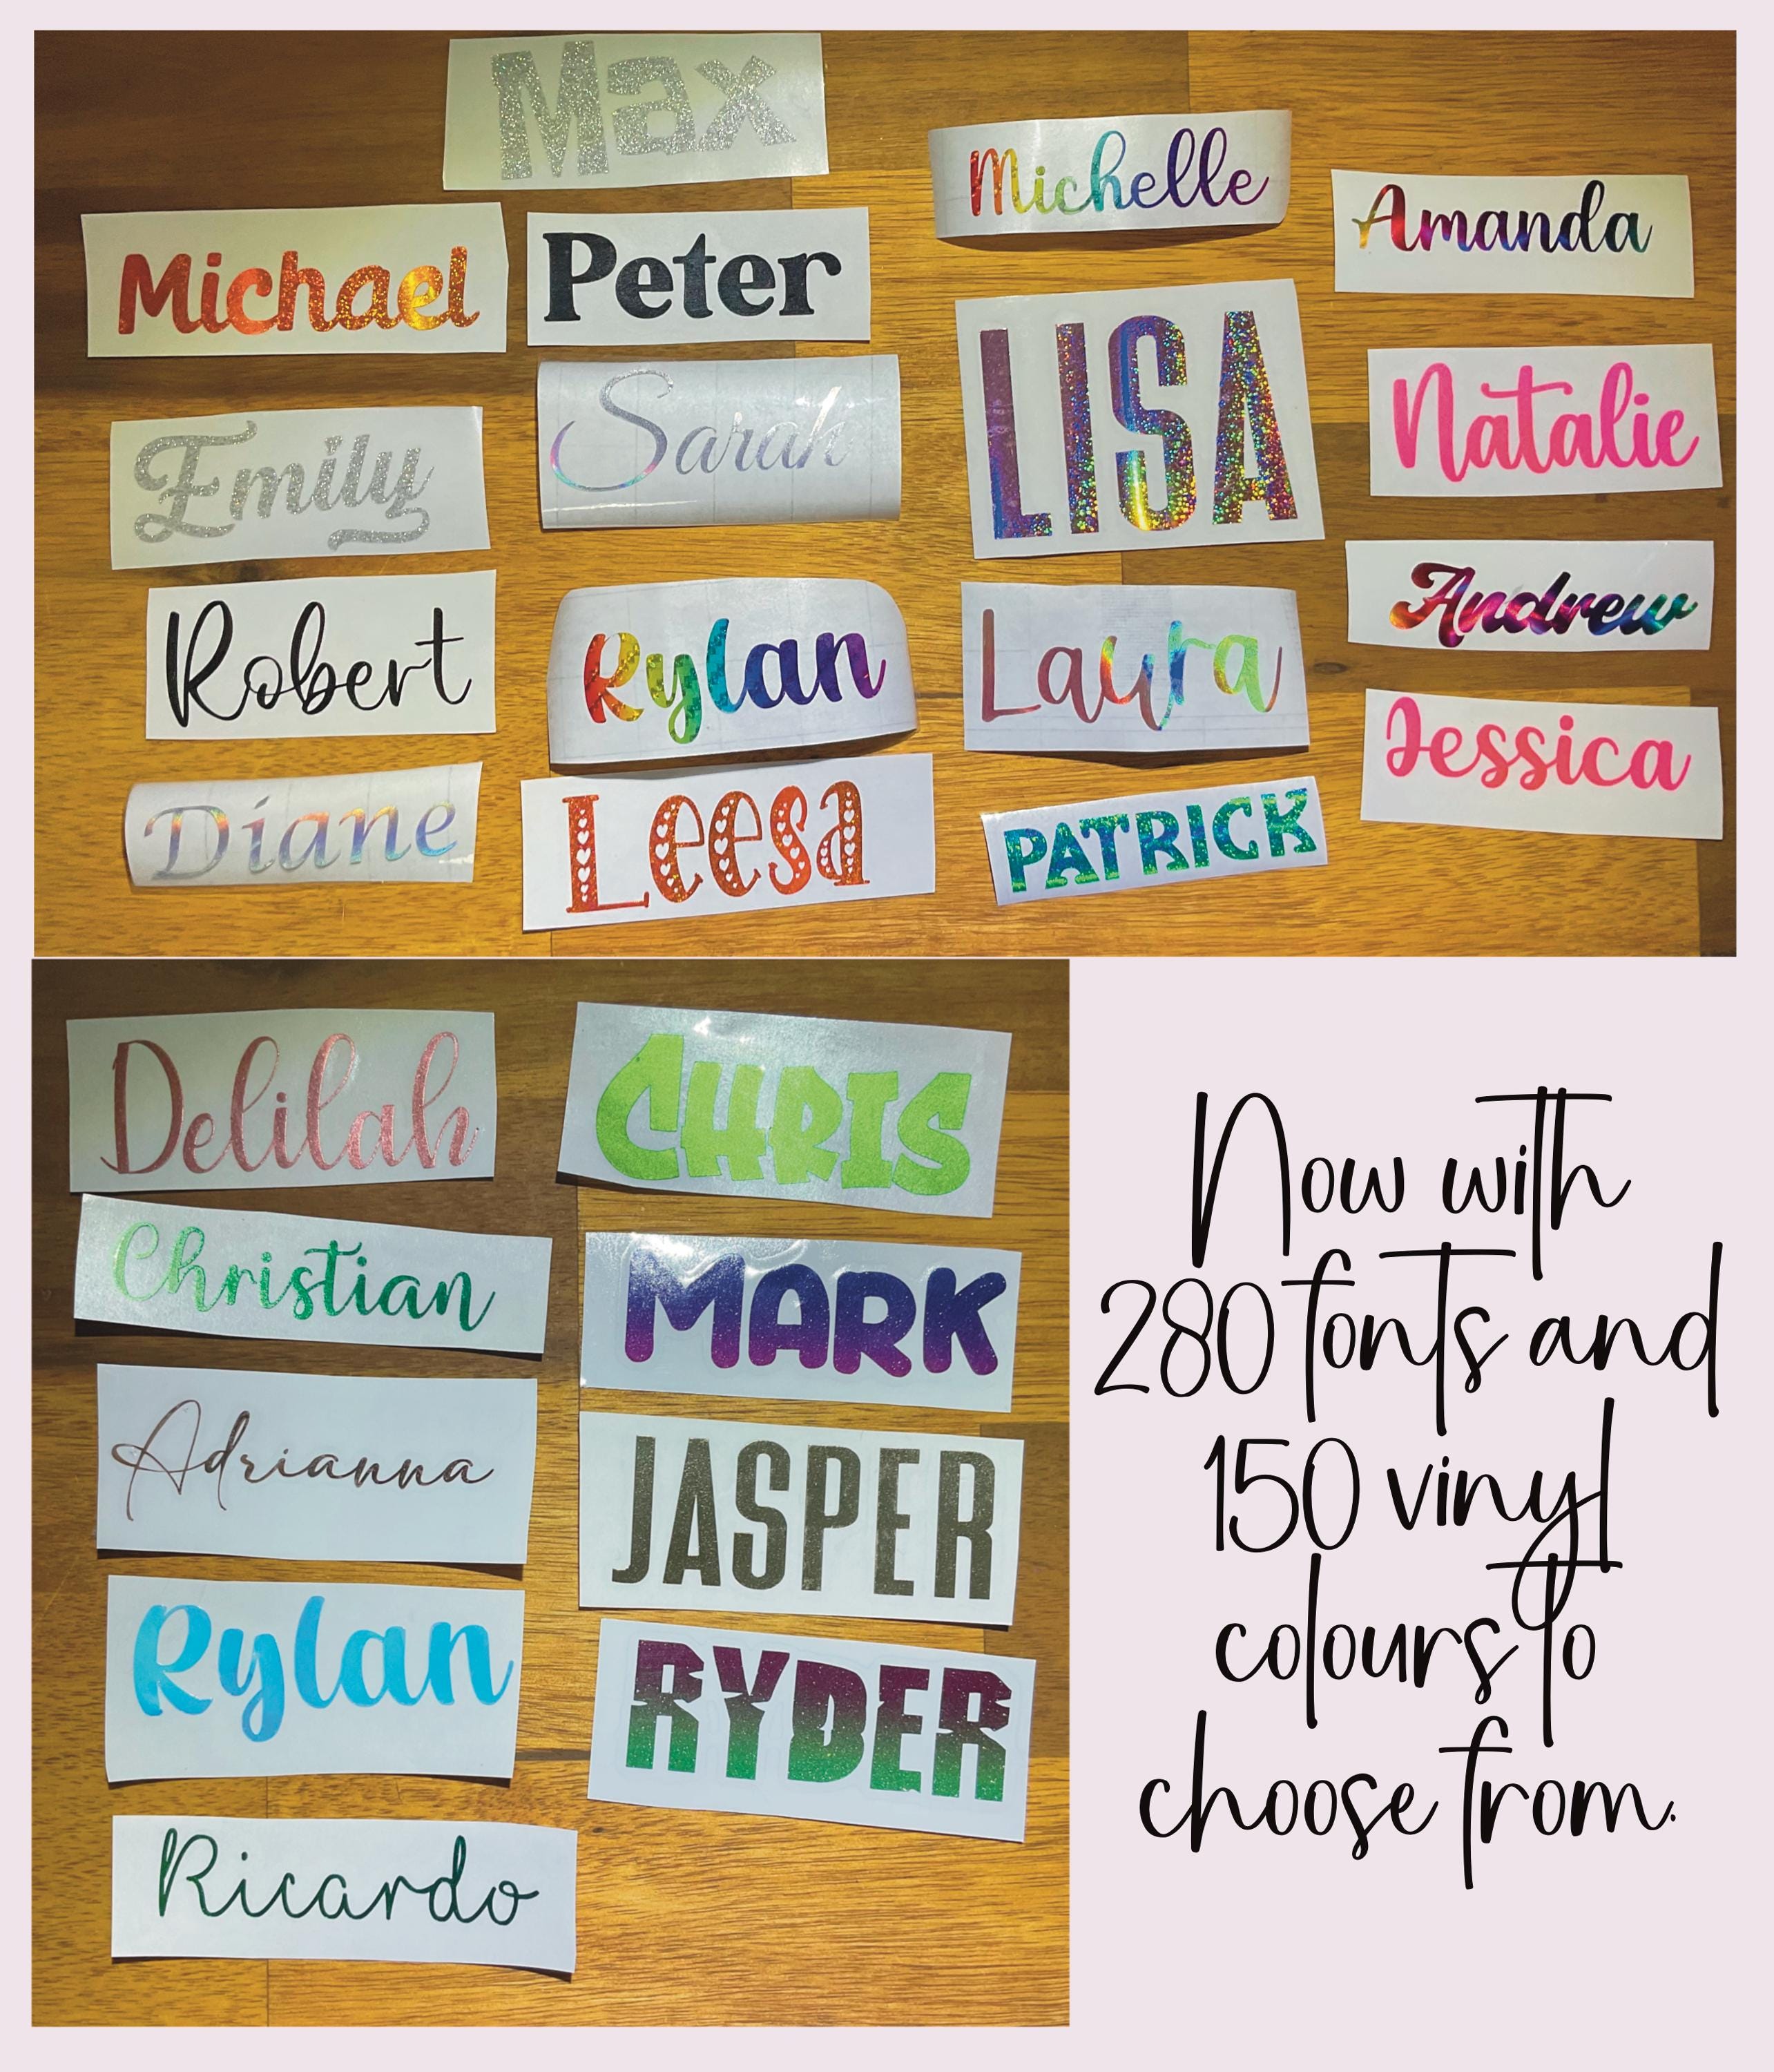 Max
Michelle
Amanda
Michael
Peter
LISA
Natalie
Emily
Sarah
Andrew
Robert
Rylan
Laura
Jessica
Diane
Leesa
PATRICK
Delilah
CHRIS
Christian
MARK
Adrianna
JASPER
Rylan
RYDER
Ricardo
Now with
280 fonts and
150 vinyl
colours to
choose from.